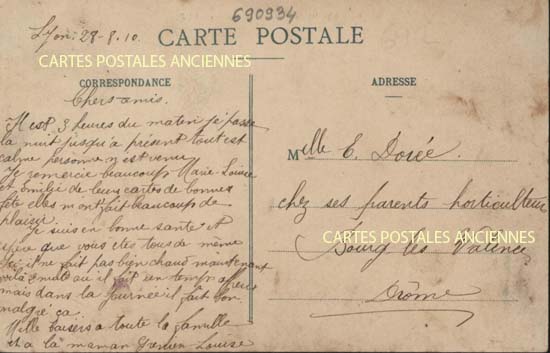 690934
Lyon: 28-8.10
CARTE POSTALE
CARTES POSTALES ANCIENNES
CORRESPONDANCE
Chers amis.
Il est 3 heures du matin je passe
la nuit jusqu'a présent tout est
calme personne n'est venu
Je remercie beaucoup Marie-Louise
et émilie de leurs cartes de bonnes
fête elles m'ont fait beaucoup de
plaisir
Je suis en bonne santé et
que vous êtes tous de même
il ne fait pas bien chaud maintenant
voilà 2 mat ou il fait un temps affreux
mais dans la journée il fait bon
malgré ça.
Mille baisers a toute la famille
et a la maman Louise
ADRESSE
Mlle E. Dorée.
chez ses parents horticulteur
CARTES POSTALES ANCIENNES
Bourg les Valence
Drôme